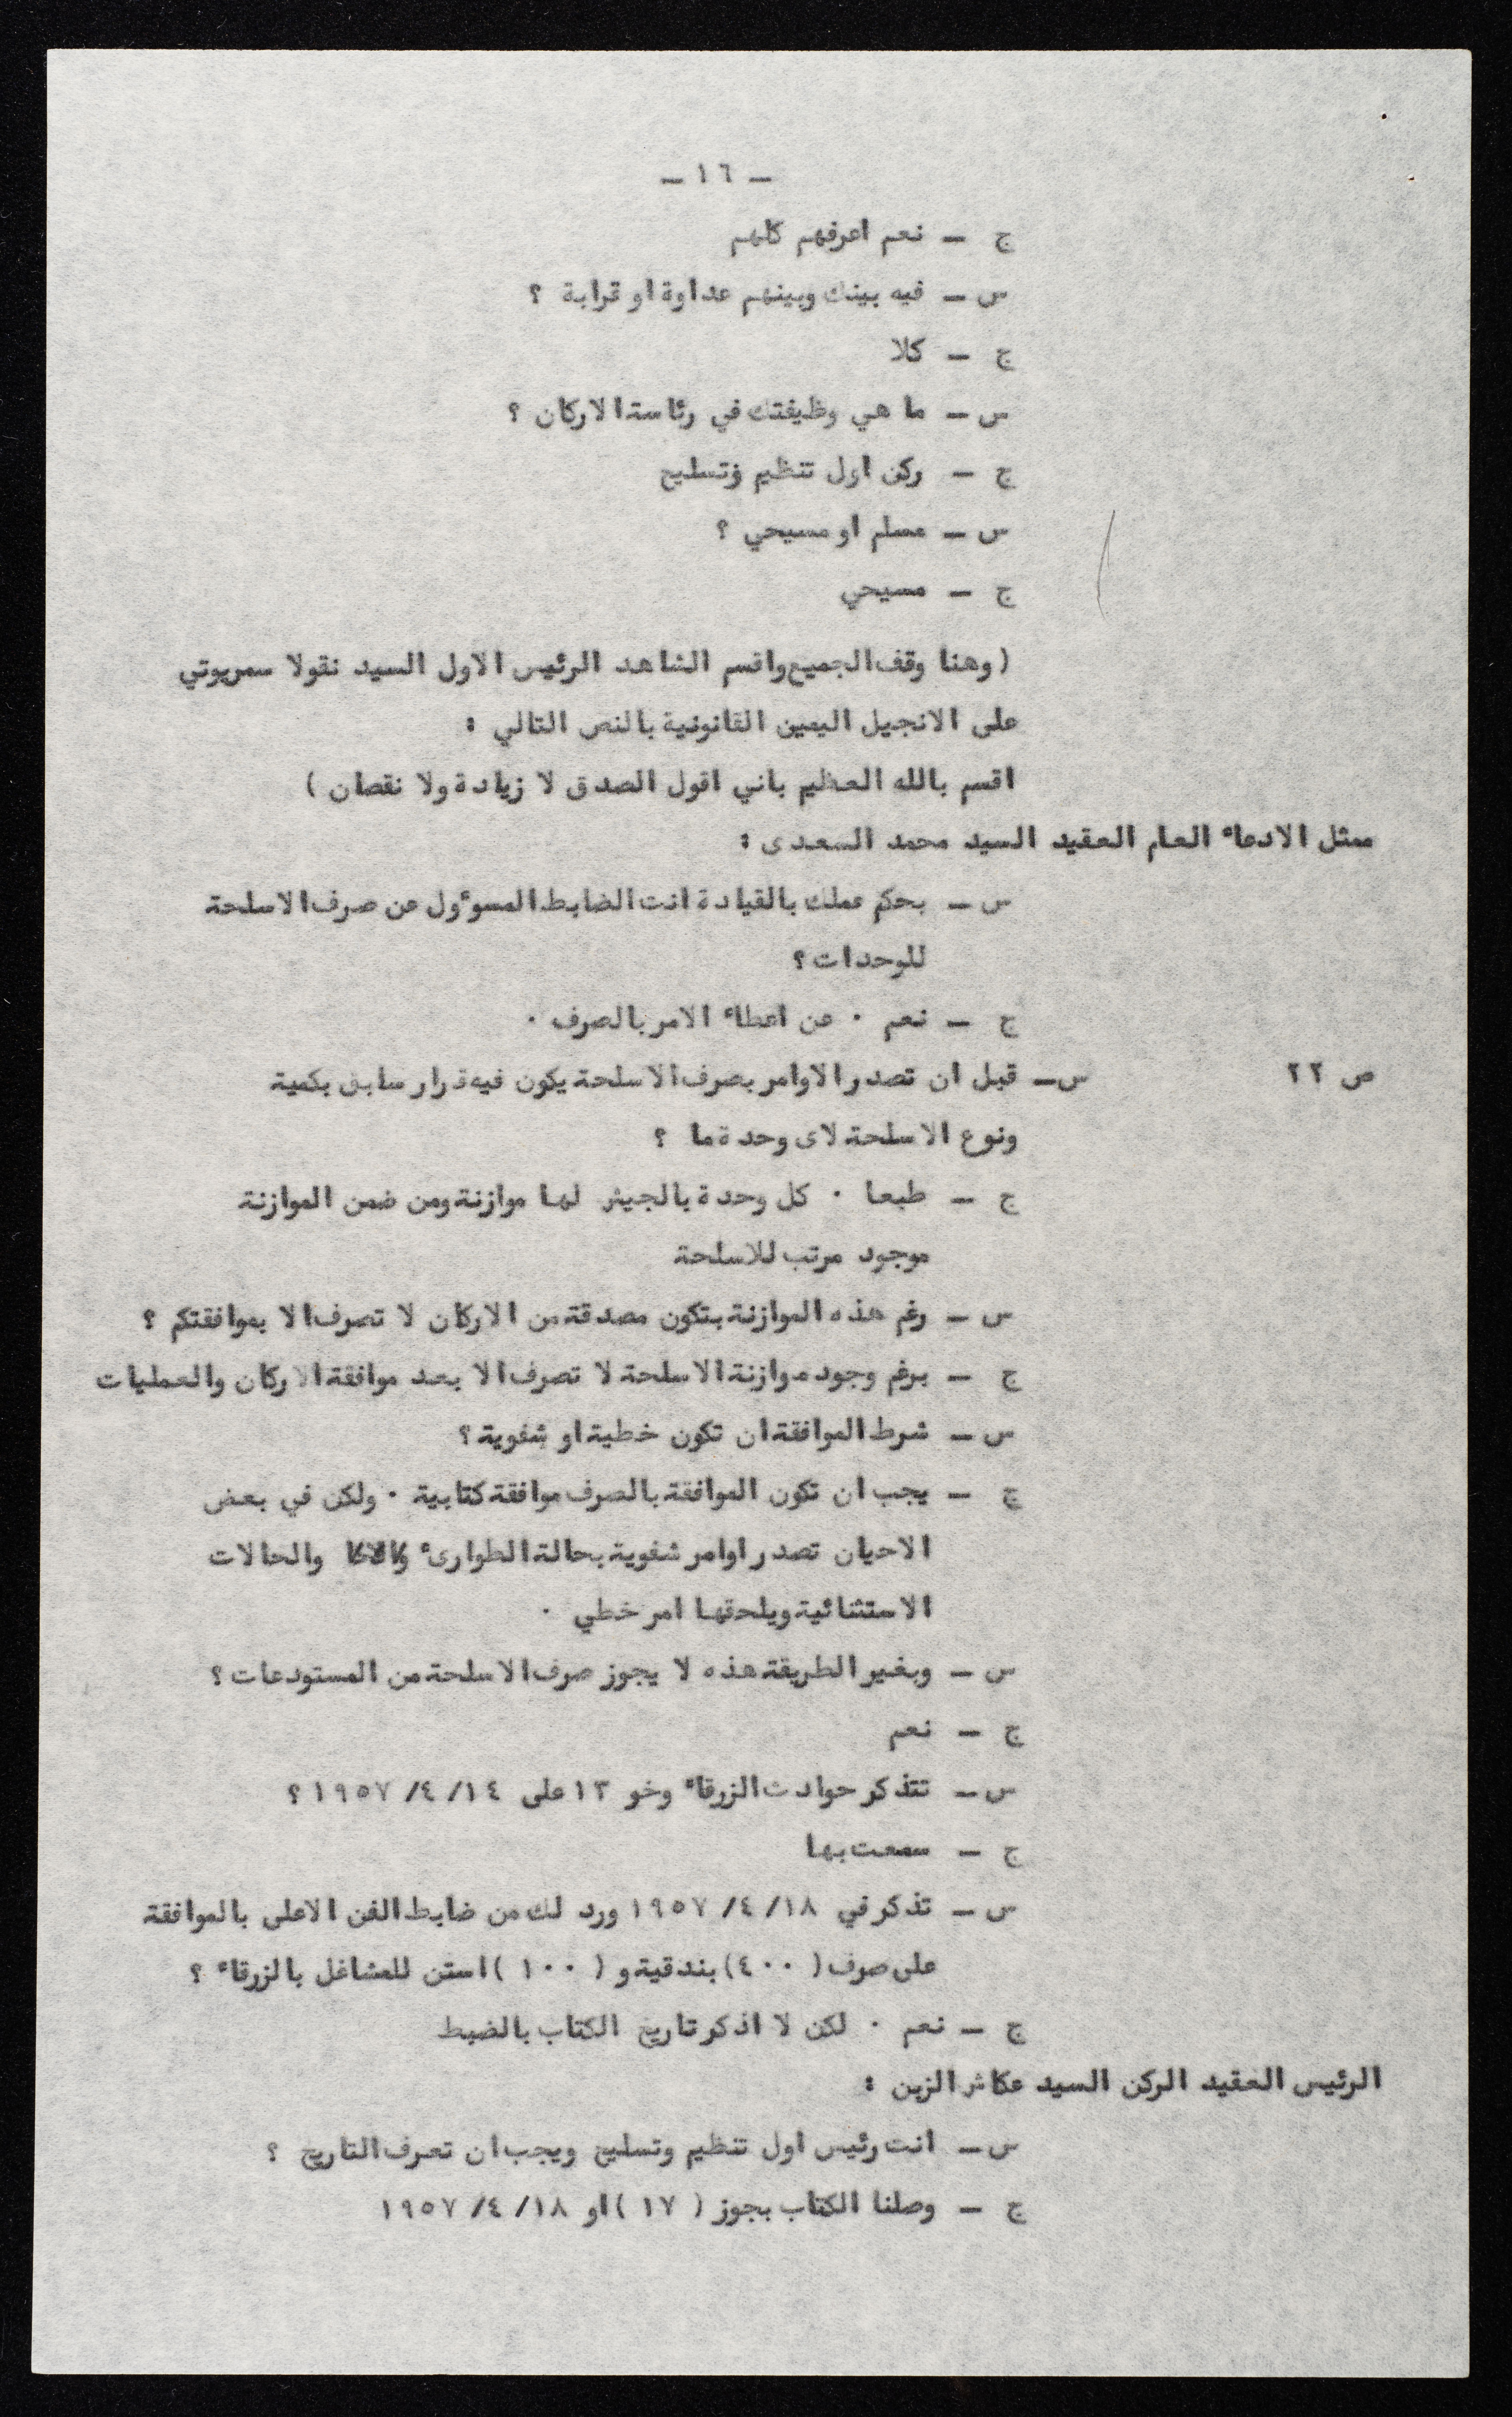 – ١٦ –
ج – نعم اعرفهم كلهم
س – فيه بينك وبينهم عداوة او قرابة ؟
ج – كلا
س – ما هي وظيفتك في رئاسة الاركان ؟
ج – ركن اول تنظيم وتسليح
س – مسلم او مسيحي ؟
ج – مسيحي
( وهنا وقف الجميع واقسم الشاهد الرئيس الاول السيد نقولا سمريوتي
على الانجيل اليمين القانونية بالنص التالي :
اقسم بالله العظيم باني اقول الصدق لا زيادة ولا نقصان )
ممثل الادعاء العام العقيد السيد محمد السعدى :
س – بحكم عملك بالقيادة انت الضابط المسوءول عن صرف الاسلحة
للوحدات ؟
ج – نعم ٠ عن اعطاء الامر بالصرف ٠
ص ٢٢ س – قبل ان تصدر الاوامر بصرف الاسلحة يكون فيه قرار سابق بكمية
ونوع الاسلحة لاى وحدة ما ؟
ج – طبعا ٠ كل وحدة بالجيش لها موازنة ومن ضمن الموازنة
موجود مرتب للاسلحة
س – رغم هذه الموازنة بتكون مصدقة من الاركان لا تصرف الا بموافقتكم ؟
ج – برغم وجود موازنة الاسلحة لا تصرف الا بعد موافقة الاركان والعمليات
س – شرط الموافقة ان تكون خطية او شفوية ؟
ج – يجب ان تكون الموافقة بالصرف موافقة كتابية ٠ ولكن في بعض
الاحيان تصدر اوامر شفوية بحالة الطوارىء والحالات
الاستثنائية ويلحقها امر خطي ٠
س – وبغير الطريقة هذه لا يجوز صرف الاسلحة من المستودعات ؟
ج – نعم
س – تتذكر حوادث الزرقاء وخو ١٣ على ١٤/ ٤/ ١٩٥٧ ؟
ج – سمعت بها
س – تذكر في ١٨/ ٤/ ١٩٥٧ ورد لك من ضابط الفن الاعلى بالموافقة
على صرف ( ٤٠٠) بندقية و ( ١٠٠ ) استن للمشاغل بالزرقاء ؟
ج – نعم ٠ لكن لا اذكر تاريخ الكتاب بالضبط
الرئيس العقيد الركن السيد عكاش الزبن :
س – انت رئيس اول تنظيم وتسليح ويجب ان تعرف التاريخ ؟
ج – وصلنا الكتاب بجوز ( ١٧ ) او ١٨/ ٤/ ١٩٥٧